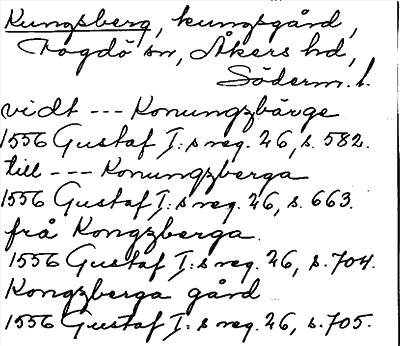 Kungsberg, kungsgård,
Fogdö sn, Åkers hd,
Söderm. l.
vidt --- Konungzbärge
1556 Gustaf I:s reg. 26, s. 582.
till --- Konungzberga
1556 Gustaf I:s reg. 26, s. 663.
från Kongzberga.
1556 Gustaf I:s reg. 26, s. 704.
Kongzberga gård
1556 Gustaf I:s reg. 26, s. 705.